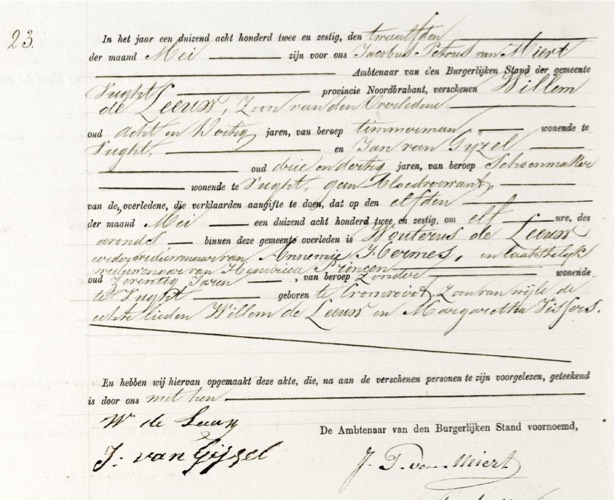 23.
In het jaar een duizend acht honderd twee en zestig, den twaalfden
der maand Mei zijn voor ons Jacobus Petrus van Miert
Ambtenaar van den Burgerlijken Stand der gemeente
Vught provincie Noordbrabant, verschenen Willem
de Leeuw, Zoon van den Overledene
oud acht en Veertig jaren, van beroep timmerman wonende te
Vught. en Jan van Gijzel
oud drie en dertig jaren, van beroep Schoenmaker
wonende te Vught, geen Bloedverwant,
van de overledene, die verklaarden aangifte te doen, dat op den elfden
der maand Mei een duizend acht honderd twee en zestig, om elf ure, des
avonds binnen deze gemeente overleden is Wouterus de Leeuw
eerder weduwnaar van Annemie Hermes, en laatstelijk
weduwenaar van Hendrica Princen
oud Zeventig Jaren, van beroep Zonder wonende
te Vught geboren te Cromvoirt Zoon van wijle de
echte lieden Willem de Leeuw en Margaretha Vissers.
En hebben wij hiervan opgemaakt deze akte, die, na aan de verschenen personen te zijn voorgelezen, geteekend
is door ons met hen
W de Leeuw
De Ambtenaar van den Burgerlijken Stand voornoemd,
J. van Gijzel
J. P. van Miert